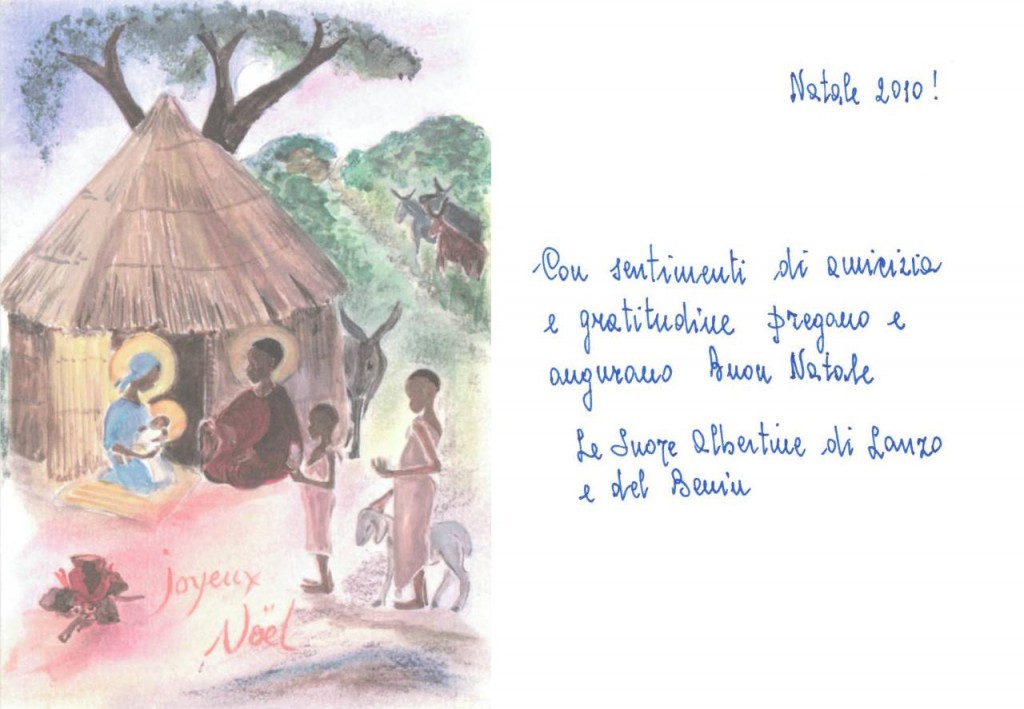 Joyeux
Noël
Natale 2010!
Con sentimenti di amicizia
e gratitudine pregano e
augurano Buon Natale
Le Suore Albertine di Lanzo
e del Benin